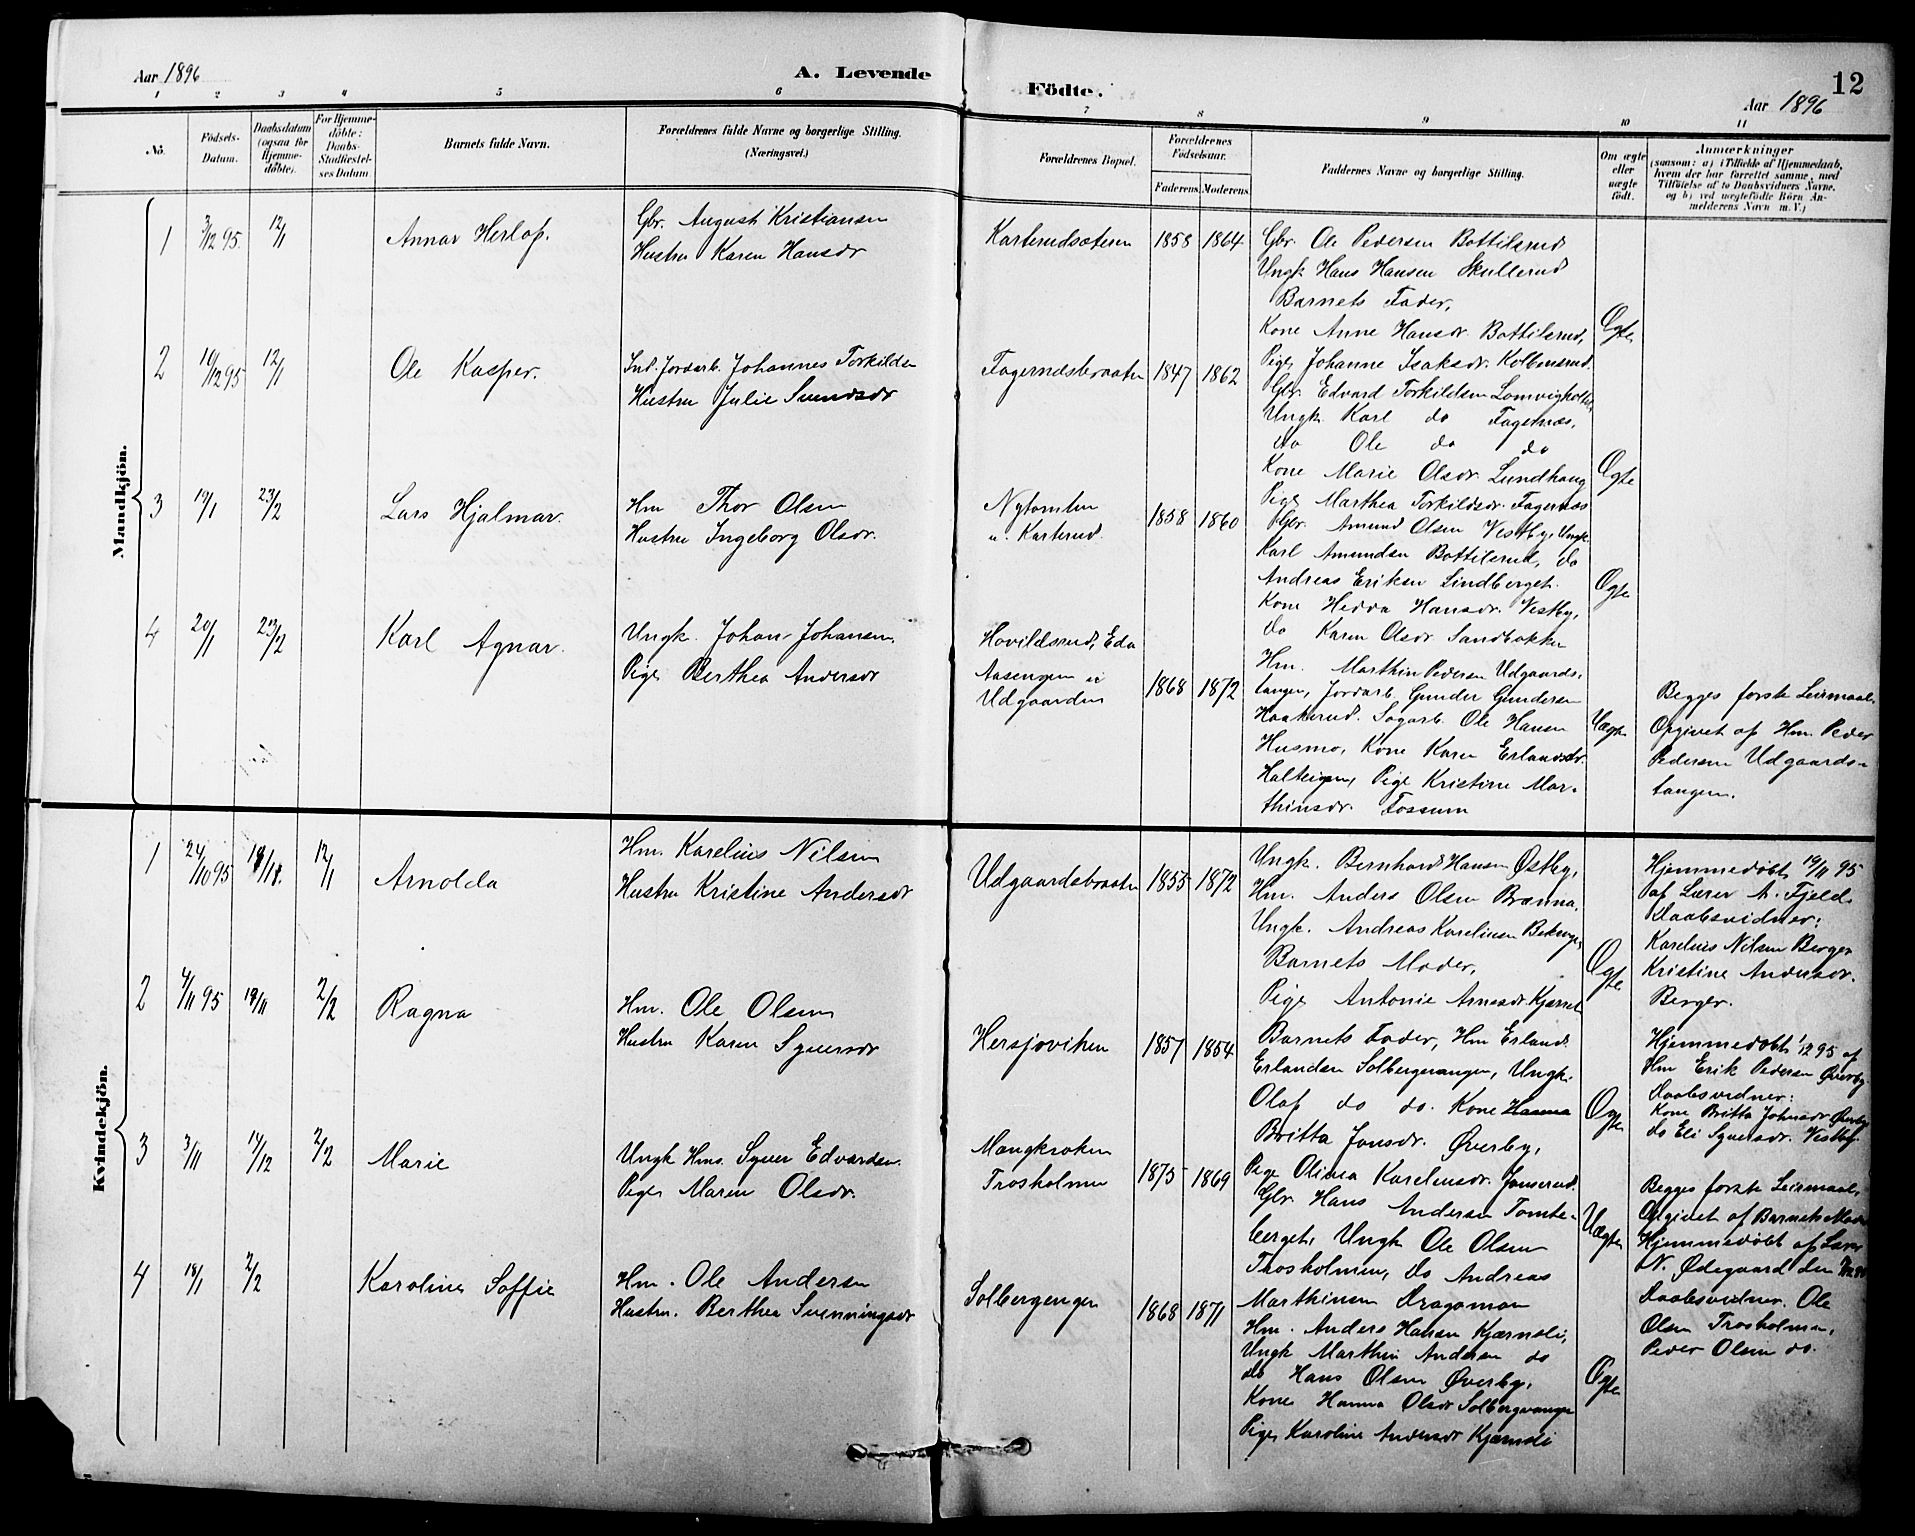 Aar 1896
A. Levende
Födte.
12
Aar 1896
1 2 3 4 5 6 7 8 9 10 11
No.
Födsels-
Datum.
Daabsdatum
(ogsaa for
Hjemme-
döbte).
For Hjemme-
döbte:
Daabs-
Stadfæstel-
ses Datum
Barnets fulde Navn.
Forældrenes fulde Navne og borgerlige Stilling.
(Næringsvei.)
Forældrenes Bopæl.
Forældrenes
Födselsaar.
Faderens. Moderens.
Faddernes Navne og borgerlige Stilling.
Om ægte
eller
uægte
födt.
Anmærkninger
(saasom: a) i Tilfælde af Hjemmedaab,
hvem der har forrettet samme, med
Tilföielse af to Daabsvidners Navne,
og b) ved uægtefödte Börn An-
melderens Navn m. V.)
Mandkjön.
1 3/12 95. 12/1 Annar Herlof.
Gbr. August Kristiansen
Hustru Karen Hansdr
Karterudsæteren 1858 1864
Gbr. Ole Pedersen Bottilsrud
Ungk Hans Hansen Skullerud
Barnets Fader,
Kone Anne Hansdr. Bottilsrud,
Pige Johanne Isaksdr. Kolbensrud.
Ægte
2 19/12 95 12/1 Ole Kasper.
Ind. Jordarb. Johannes Torkildsen
Hustru Julie Svendsdr
Fagernæsbraaten 1847 1862
Gbr. Edvard Torkildsen Lomvigholtet,
Ungk. Karl do Fagernæs,
do Ole do do
Kone Marie Olsdr. Lundhaug
Pige Marthea Torkildsdr. Fagernæs
Ægte
3 19/1 23/2 Lars Hjalmar.
Hm Thor Olsen
Hustru Ingeborg Olsdr.
Nytomten
u. Karterud.
1858 1860
Gbr. Amund Olsen Vestby, Ungk.
Karl Amundsen Bottilsrud, do
Andreas Eriksen Lindberget.
Kone Hedda Hansdr. Vestby,
do Karen Olsdr. Sandbakken
Ægte
4 20/1 23/2 Karl Agnar.
Ungk. Johan Johansen.
Pige Berthea Andersdr
Hovildsrud, Eda
Aasengen u
Udgaarden
1868 1872
Hm. Marthin Pedersen Udgaards-
tangen, Jordarb. Gunder Gundersen
Haakerud. Sagarb. Ole Hansen
Husmo, Kone Karen Erlandsdr.
Halteigen, Pige Kristine Mar-
thinsdr. Fossum
Uægte
Begges første Leiermaal.
Opgivet af Hm. Peder
Pedersen Udgaards-
tangen.
Kvindekjön.
1 24/10 95 12/1 Arnolda
Hm. Karelius Nilsen
Hustru Kristine Andersdr
Udgaardsbraaten 1855 1872
Ungk. Bernhard Hansen Østby,
Hm. Anders Olsen Brænna,
Ungk. Andreas Kareliusen
Barnets Moder,
Pige Antonie Arnesdr. Kjærret
Ægte
Hjemmedøbt 19/11 95
af Lærer A. Fjeld
Daabsvidner:
Karelius Nilsen Berger
Kristine Andersdr.
Berger.
2 4/11 95 2/2 Ragna
Hm. Ole Olsen
Hustru Karen Syversdr
Hersjøviken 1857 1854
Barnets Fader, Hm Erland
Erlandsen Solbergvangen, Ungk.
Olaf do do. Kone Hanna
Britta Jonsdr. Øverby,
Pige Olivia Kareliusdr. Jonserud.
Ægte
Hjemmedøbt 1/12 95 af
Hm Erik Pedersen Øverby.
Daabsvidner:
Kone Britta Johnsdr Øverby
do Eli Syversdr. Vestby.
3 3/11 14/12 2/2 Marie
Ungk Hms. Syver Edvardsen.
Pige Maren Olsdr.
Mangkroken
Trosholmen
1875 1869
Gbr. Hans Andersen Tomte-
berget, Ungk Ole Olsen
Trosholmen, do Andreas
Marthinsen Dragamon
Uægte
Begges første Leiermaal,
Opgivet af Barnets Moder
Hjemmedøbt af Lærer
N. Ødegaard den
Daabsvidner. Ole
Olsen Trosholmen,
Peder Olsen do.
4 18/1 2/2 Karoline Soffie
Hm. Ole Andersen
Hustru. Berthea Svenningsdr
Solbergenger 1868 1871
Hm. Anders Hansen Kjærnsli,
Ungk Marthin Andersen do
do Hans Olsen Øverby,
Kone Hanna Olsdr Solbergvangen
Pige Karoline Andersdr Kjærnsli
Ægte